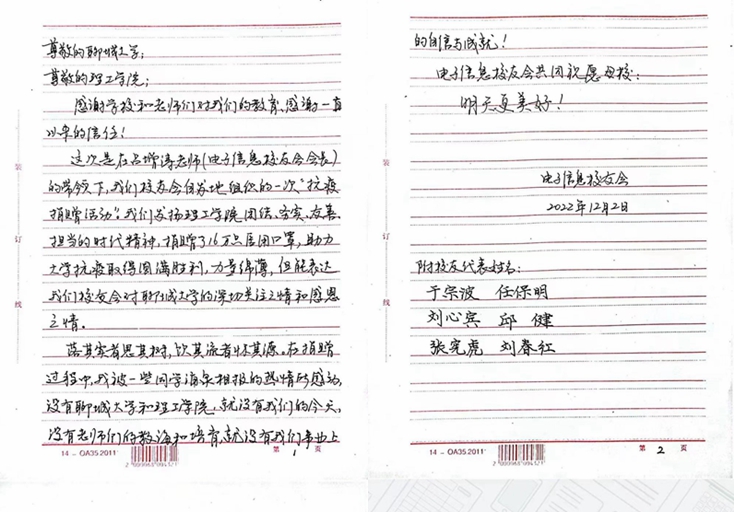 尊敬的聊城大学：
尊敬的理工学院：
感谢学校和老师们对我们的教育、感谢一直
以来的信任！
这次是在吕增涛老师(电子信息校友会会长)
的带领下，我们校友会自发地组织的一次“抗疫
捐赠活动”。我们发扬理工学院团结、务实、友善、
担当的时代精神，捐赠了16万只医用口罩，助力
大学抗疫取得圆满胜利，力量绵薄，但能表达
我们校友会对聊城大学的深切关注之情和感恩
之情。
落其实者思其树，饮其流者怀其源。在捐赠
过程中，我被一些同学涌泉相报的热情所感动，
没有聊城大学和理工学院，就没有我们的今天，
没有老师们的教诲和培育，就没有我们事业上
14-OA35.2011
第 1 页
装
订
线
的自信与成就！
电子信息校友会共同祝愿母校：
明天更美好！
电子信息校友会
2022年12月2日
附校友代表姓名：
于宗波 任保明
刘心宾 邱健
张宪虎 刘春红
14-OA35.2011
第 2 页
装
订
线